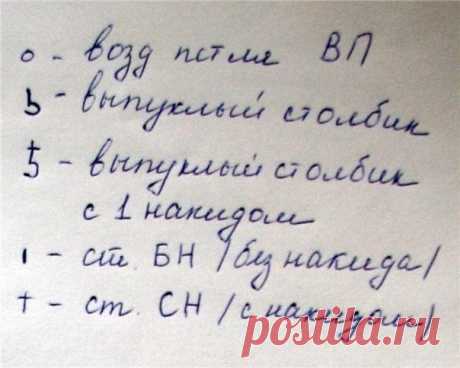 о - возд петля ВП
ь - выпуклый столбик
ҍ - выпуклый столбик
с 1 накидом
ı - ст. БН /без накида/
+ - ст. СН /с накидом/
postila.ru